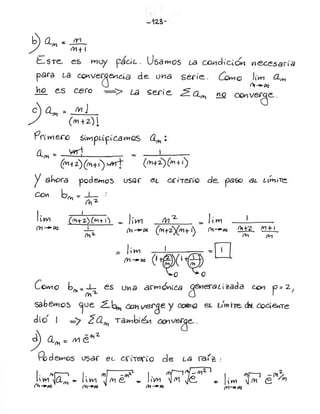 -123-
b) a_n = n / n+1
Este es muy fácil. Usamos la condición necesaria
para la convergencia de una serie. Como lim a_n
n→∞
no es cero ⇒ la serie Σ a_n no converge.
c) a_n = n! / (n+2)!
Primero simplificamos a_n:
a_n = n! / (n+2)(n+1) n! = 1 / (n+2)(n+1)
y ahora podemos usar el criterio de paso al límite
con b_n = 1 / n² :
lim n→∞ 1/(n+2)(n+1) / 1/n² = lim n→∞ n² / (n+2)(n+1) = lim n→∞ 1 / n+2/n · n+1/n
= lim n→∞ 1 / (1+2/n)(1+1/n) = 1
→0 →0
Como b_n = 1/n² es una armónica generalizada con p=2,
sabemos que Σ b_n converge y como el límite del cociente
dio 1 ⇒ Σ a_n también converge.
d) a_n = n e^-n²
Podemos usar el criterio de la raíz:
lim n→∞ ⁿ√a_n = lim n→∞ ⁿ√n e^-n² = lim n→∞ ⁿ√n ⁿ√e^-n² = lim n→∞ ⁿ√n e^-n²/n